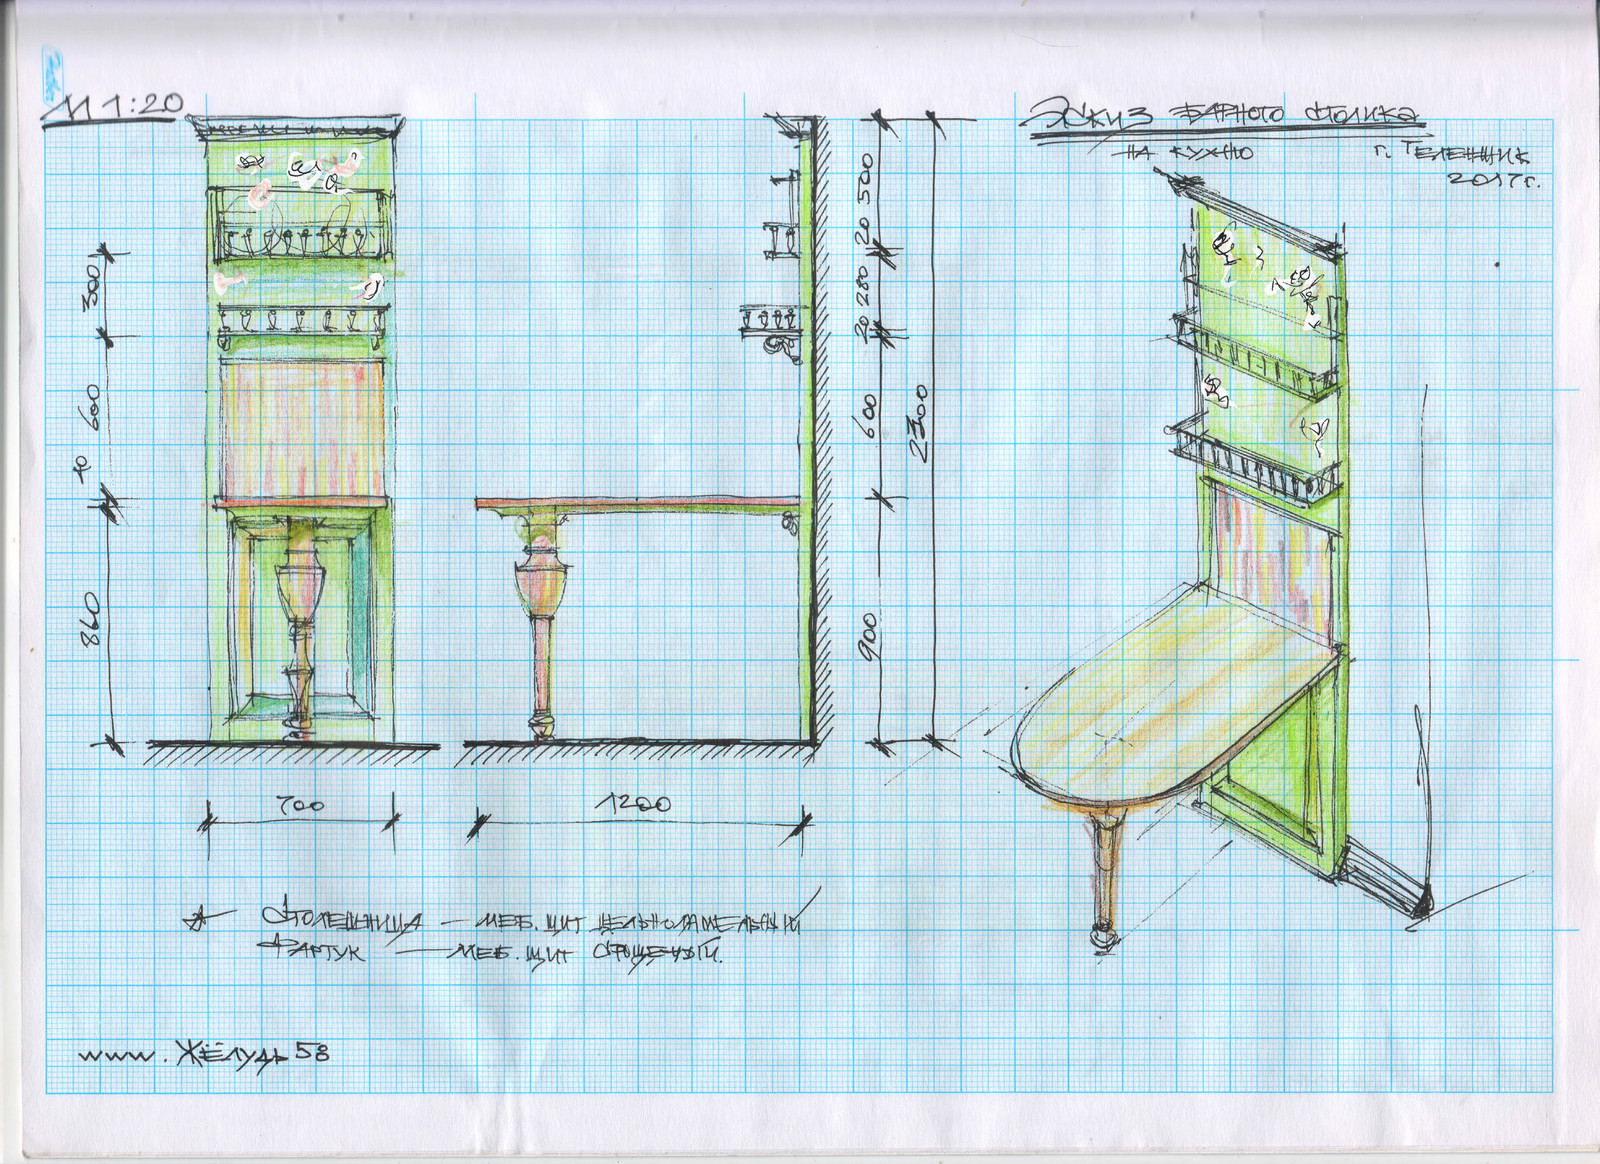 М 1:20
Эскиз барного столика
на кухню
г. Теленщик
2017г.
300
600
40
860
500
20
280
20
600
900
2300
700
1200
Столешница — меб. щит цельноламельный
Фартук — меб. щит срщеный.
www.Жёлудь58